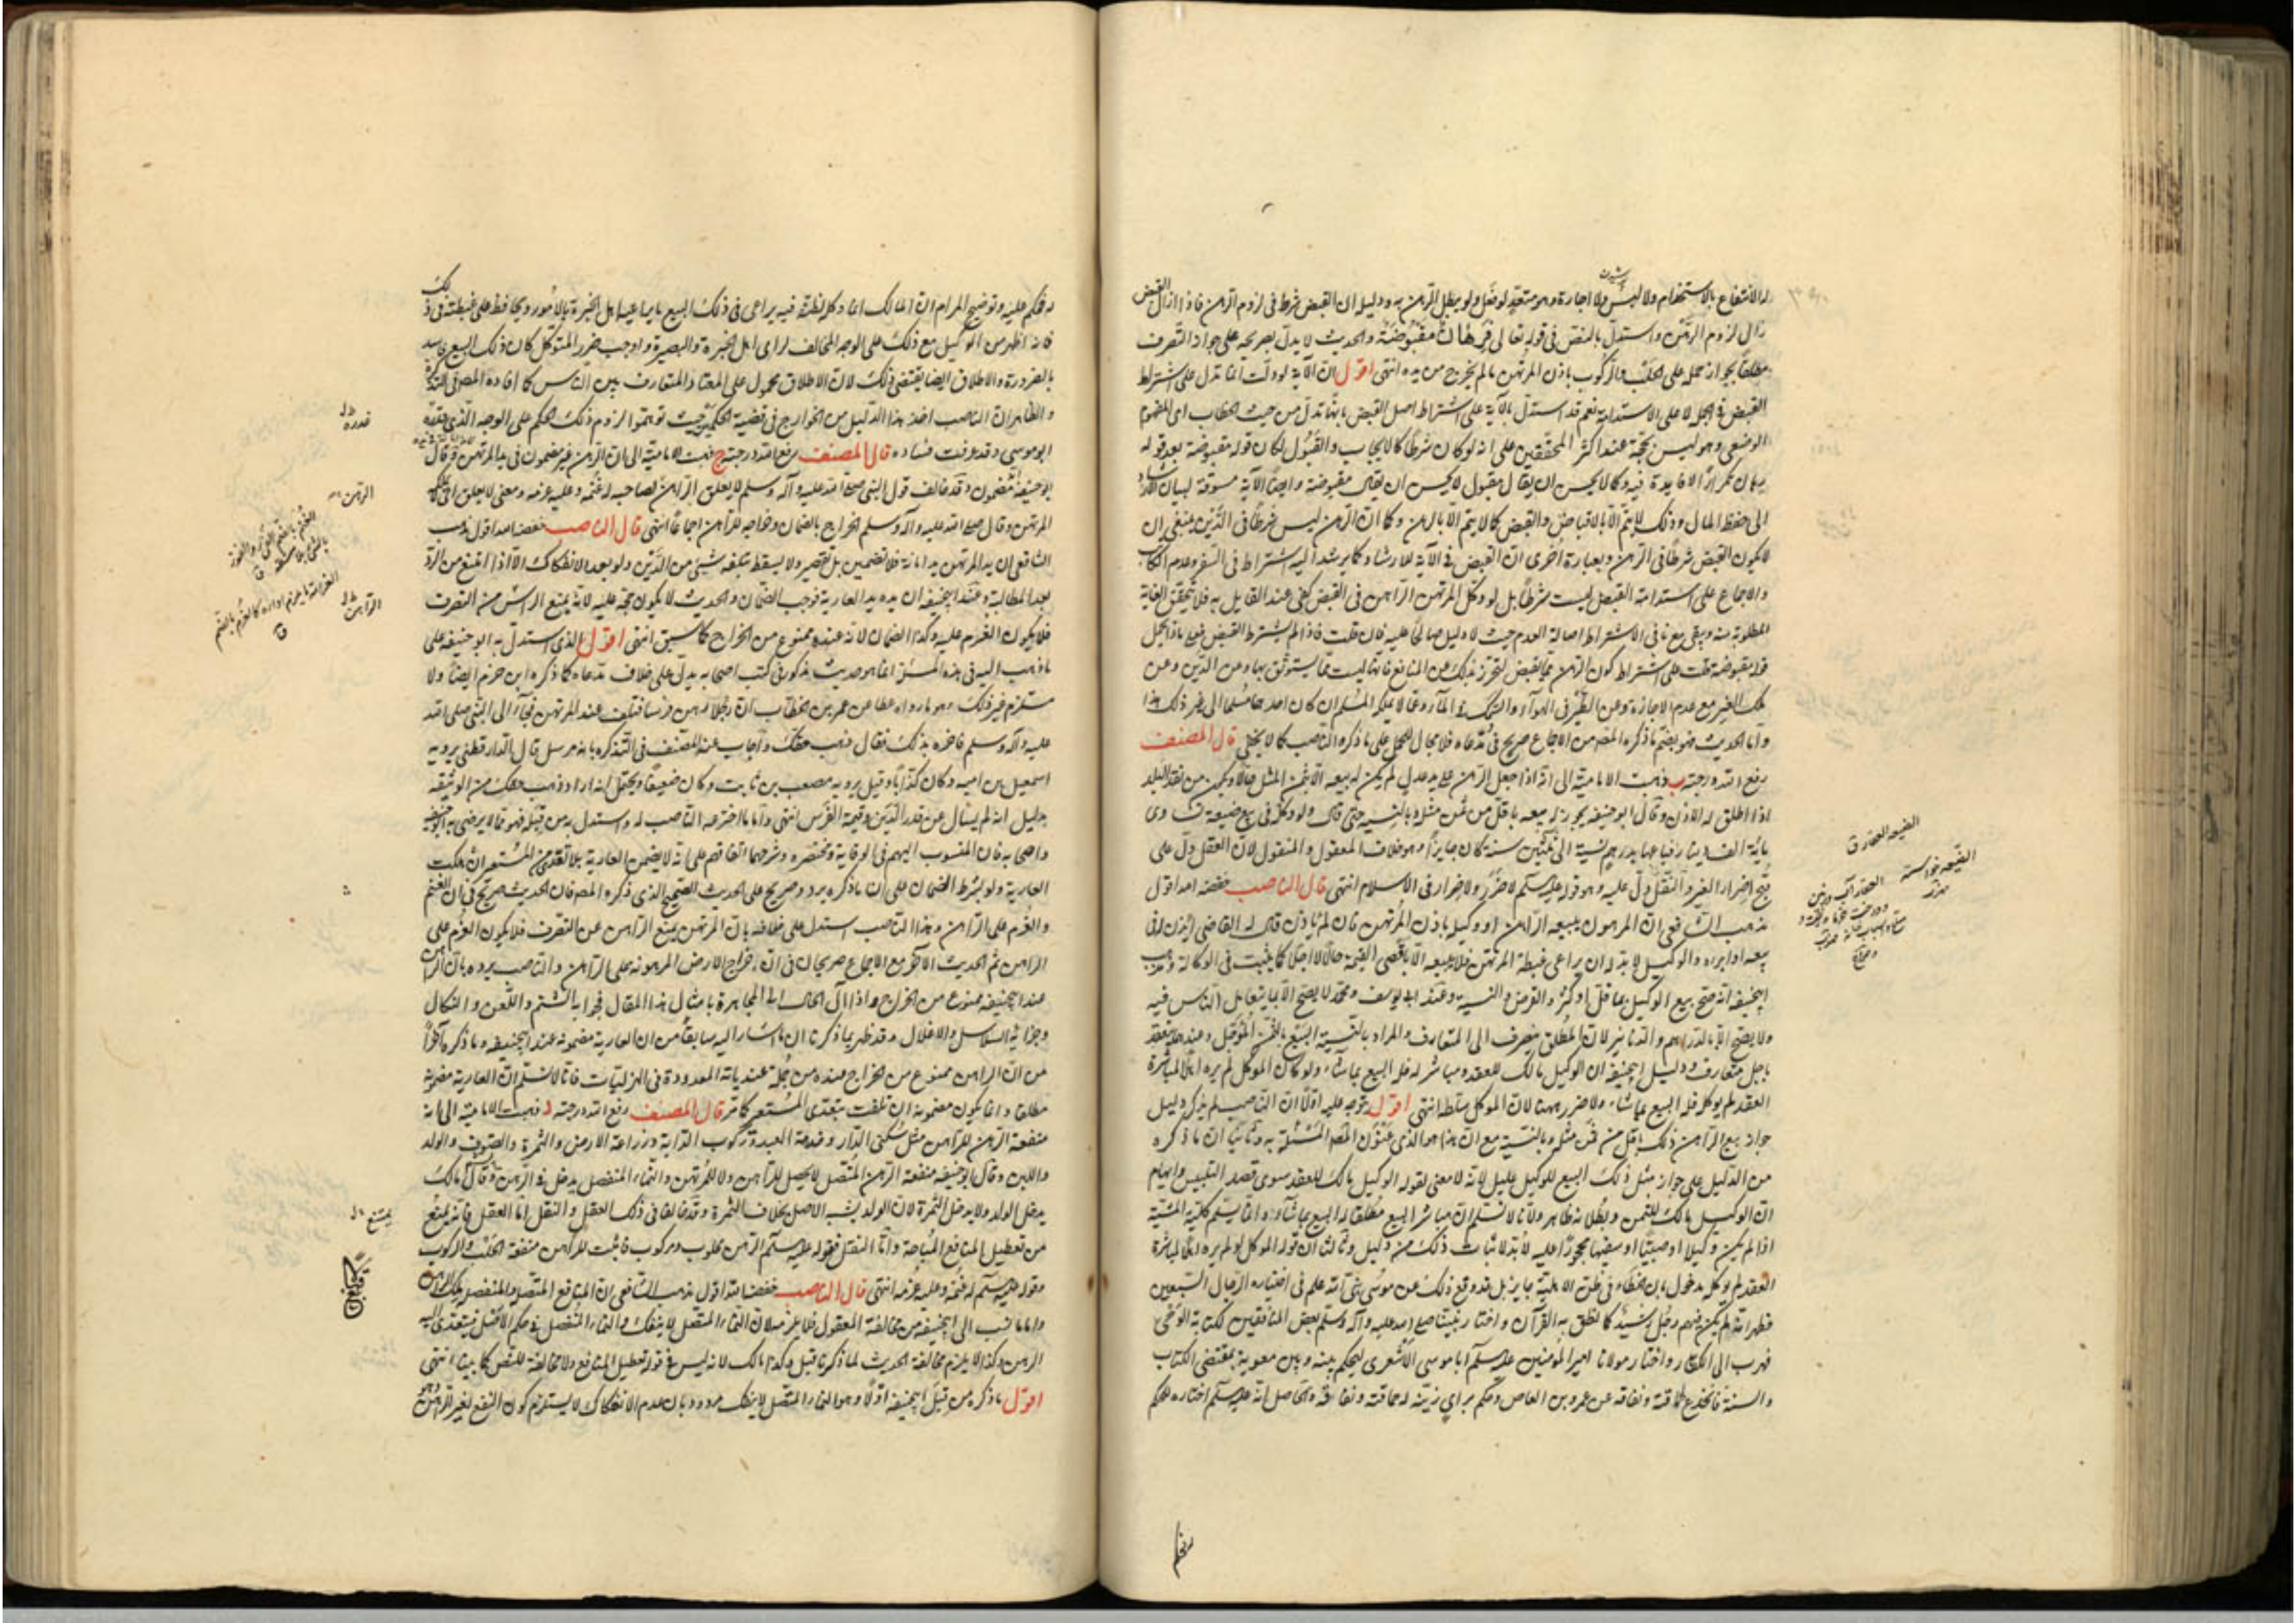 له الانتفاع بالاستخدام ولا ليس ولا اجارة وهو متعد لو فعل ولو يبطل الرهن به ودليل ان القبض شرط فى لزوم الرهن فاذا زال القبض
زال لزوم الرهن واستدل بالنص فى قوله تعالى فرهان مقبوضة والحديث لا يدل بصريحه على جواز التصرف
مطلقا بجواز حمله على الحلب والركوب باذن المرتهن ما لم يخرج من يده انتهى اقول ان الآية لو دلت انما تدل على اشتراط
القبض فى الجملة لا على الاستدامة نعم قد استدل بالآية على اشتراط اصل القبض بانها تدل من حيث الخطاب اى المفهوم
الوصفى وهو ليس بحجة عند اكثر المحققين على انه لو كان شرطا كالايجاب والقبول لكان قوله مقبوضة بعد قوله
رهان تكرارا لا فايدة فيه وكما لا يحسن ان يقال مقبول لا يحسن ان يقال مقبوضة وايضا الآية مسوقة لبيان الارشاد
الى حفظ المال وذلك لا يتم الا بالاقباض والقبض كما لا يتم الا بالرهن وكما ان الرهن ليس شرطا فى الدين ينبغى ان
لا يكون القبض شرطا فى الرهن وبعبارة اخرى ان القبض فى الآية للارشاد كما يرشد اليه اشتراط فى السفر وعدم الكاتب
والاجماع على استدامة القبض ليست شرطا بل لو وكل المرتهن الراهن فى القبض كفى عند القايل به فلا تتحقق الغاية
المطلوبة منه ويبقى معنا فى الاشتراط اصالة العدم حيث لا دليل صالحا عليه فان قلت فاذا لم يشترط القبض فعلى ماذا يحمل
قوله مقبوضة قلت على اشتراط كون الرهن مما يقبض لتحرز بذلك عن المنافع فانها ليست مما يستوثق بها وعن الدين وعن
ملك الغير مع عدم الاجازة وعن الطير فى الهوآء والسمك فى المآء وعما لا يملكه المسلم ان كان احدهما مسلما الى غير ذلك هذا
واما الحديث فهو بضم ما ذكره المص من الاجماع صريح فى مدعاه فلا مجال للحمل على ما ذكره الناصب كما لا يخفى قال المصنف
رفع الله درجته ب ذهبت الامامية الى انه اذا جعل الرهن على يد عدل لم يكن له بيعه الا بثمن المثل حالا ويكون من نقد البلد
اذا اطلق له الاذن وقال ابو حنيفه يجوز له بيعه باقل من ثمن مثله وبالنسيه حتى قال ولو وكله فى بيع ضيعة تساوى
مائة الف دينار فباعها بدرهم نسية الى ثلثين سنة كان جايزا وهو خلاف المعقول والمنقول لان العقل دل على
قبح اضرار الغير والنقل دل عليه وهو قوله عليه السلام لا ضرر ولا ضرار فى الاسلام انتهى قال الناصب خفضه الله اقول
مذهب الشافعى ان المرهون يبيعه الراهن او وكيله باذن المرتهن فان لم ياذن قال له القاضى ايذن فى
بيعه او ابراه والوكيل لا بد له ان يراعى غبطة المرتهن فلا يبيعه الا باقصى القيمة حالا لا اجلا كما يثبت فى الوكالة ومذهب
ابيحنيفه انه صح بيع الوكيل بما قل او كثر والقرض والنسيه وعند ابى يوسف ومحمد لا يصح الا بما يتعامل الناس فيه
ولا يصح الا بالدراهم والدنانير لان المطلق ينصرف الى المتعارف والمراد بالنسية البيع بالثمن المؤجل وعندهما يتقيد
باجل متعارف ودليل ابيحنيفه ان الوكيل مالك للعقد ومباشر له فله البيع بما شآء ولو كان الموكل لم يره اهلا لمباشرة
العقد لم يوكله فله البيع بما شاء ولا ضرر ههنا لان الموكل سلطه انتهى اقول يتوجه عليه اولا ان الناصب لم يذكر دليل
جواز بيع الراهن ذلك باقل من ثمن مثله وبالنسية مع ان هذا هو الذى عنون المص المسئلة به وثانيا ان ما ذكره
من الدليل على جواز مثل ذلك البيع للوكيل عليل لانه لا معنى لقوله الوكيل مالك للعقد سوى قصد التلبيس وايهام
ان الوكيل مالك للثمن وبطلانه ظاهر ولانا لا نسلم ان مباشر البيع مطلقا له البيع بما شآء وانما يسلم كلية المشية
اذا لم يكن وكيلا او صبيا او سفيها محجورا عليه لا بد لاثبات ذلك من دليل وثالثا ان قوله الموكل لو لم يره اهلا لمباشرة
العقد لم يوكله مدخول بان الخطاء فى ظن الاهلية جايز بل قد وقع ذلك عن موسى نبى الله عليه السلام فى اختياره الرجال السبعين
فظهر انه لم يكن فيهم رجل رشيد كما نطق به القرآن واختار نبينا صلى الله عليه وآله وسلم بعض المنافقين لكتابة الوحى
فهرب الى الكفار واختار مولانا امير المومنين عليه السلم ابا موسى الاشعرى ليحكم بينه وبين معوية بمقتضى الكتاب
والسنة فانخدع لحماقته ونفاقه عن عمرو بن العاص وحكم براى زينه له حماقته ونفاقه والحاصل انه عليه السلم اختاره للحكم
الضيعه العقار ق
الضيعه خواسته
العقار آب وزمين
ودرخت خرما
وصراح
له فحكم عليه وتوضيح المرام ان المالك انما وكله لظنه فيه يراعى فى ذلك البيع ما يراعيه اهل الخبرة بالامور ويحافظ على غبطته فى ذلك
فاذا ظهر من الوكيل مع ذلك على الوجه المخالف لراى اهل الخبرة والبصيرة واوجب ضرر الموكل كان ذلك البيع فاسدا
بالضرورة والاطلاق ايضا يقتضى ذلك لان الاطلاق محمول على المعتاد المتعارف بين الناس كما افاده المص فى التذكرة
والظاهر ان الناصب اخذ هذا الدليل من الخوارج فى قضية الحكمين حيث توهموا لزوم ذلك الحكم على الوجه الذى فعله
ابو موسى وقد عرفت فساده قال المصنف رفع الله درجته ج ذهبت الامامية الى ان الرهن غير مضمون فى يد المرتهن وقال
ابو حنيفه انه مضمون وقد خالف قول النبى صلى الله عليه وآله وسلم لا يغلق الراهن الرهن لصاحبه له غنمه وعليه غرمه ومعنى لا يغلق اى لا يملكه
المرتهن وقال صلى الله عليه وآله وسلم الخراج بالضمان وخراجه للراهن اجماعا انتهى قال الناصب خفضه الله اقول مذهب
الشافعى ان يد المرتهن يد امانة فلا تضمين بل تقصير ولا يسقط بتلفه شيئى من الدين ولو بعد الانفكاك الا اذا امتنع من الرد
بعد المطالبة وعند ابيحنيفه ان يده يد العارية فوجب الضمان والحديث لا يكون حجة عليه لانه يمنع الراهن من التصرف
فلا يكون الغرم عليه وكذا الضمان لانه عنده ممنوع من الخراج كما سبق انتهى اقول الذى استدل به ابو حنيفه على
ما ذهب اليه فى هذه المسئلة انما هو حديث مذكور فى كتب اصحابه يدل على خلاف مدعاه كما ذكره ابن حزم ايضا ولا
يستلزم غير ذلك وهو ما رواه عطا عن عمر بن الخطاب ان رجلا رهن فرسا فتلف عند المرتهن فجآء الى النبى صلى الله
عليه وآله وسلم فاخبره بذلك فقال ذهب حقك واجاب عنه المصنف فى التذكره بانه مرسل قال الدار قطنى يرويه
اسمعيل بن اميه وكان كذابا وقيل يرويه مصعب بن ثابت وكان ضعيفا ويحتمل انه اراد ذهب حقك من الوثيقه
بدليل انه لم يسال عن قدر الدين وقيمة الفرس انتهى واما ما اخترعه الناصب له واستدل به من قبله فهو مما لا يرضى به ابو حنيفه
واصحابه فان المنسوب اليهم فى الوقاية ومختصره وشرحهما اتفاقهم على انه لا يضمن العارية بلا تعد من المستعير ان هلكت
العارية ولو بشرط الضمان على ان ما ذكره يرد وصريح على الحديث الصحيح الذى ذكره المص فان الحديث صريح فى ان الغنم
والغرم على الراهن وهذا الناصب استدل على خلافه بان المرتهن يمنع الراهن عن التصرف فلا يكون الغرم على
الراهن ثم الحديث الآخر مع الاجماع صريحان فى ان خراج الارض المرهونه على الراهن والناصب يرده بان الراهن
عند ابيحنيفه ممنوع من الخراج واذا آل الحال الى المجاهرة بامثال هذا المقال فجوابه الشتم واللعن والنكال
وجزائه السلاسل والاغلال وقد ظهر بما ذكرنا ان ما اشار اليه سابقا من ان العارية مضمونه عند ابيحنيفه وما ذكره آخرا
من ان الراهن ممنوع من الخراج عنده من جملة هذياناته المعدودة فى الهزليات فانا لا نسلم ان العارية مضمونة
مطلقا وانما يكون مضمونه ان تلفت بتعدى المستعير كما مر قال المصنف رفع الله درجته د ذهبت الامامية الى انه
منفعة الرهن للراهن مثل سكنى الدار وخدمة العبد وركوب الدابة وزراعة الارض والثمرة والصوف والولد
واللبن وقال ابو حنيفه منفعة الرهن المتصل لا يحصل للراهن ولا للمرتهن والنماء المنفصل يدخل فى الرهن وقال مالك
يدخل الولد ولا يدخل الثمرة لان الولد يشبه الاصل بخلاف الثمرة وقد خالفا فى ذلك العقل والنقل اما العقل فانه يمنع
من تعطيل المنافع المباحة واما النقل فقوله عليه السلم الرهن محلوب ومركوب فاثبت للراهن منفعة الحلب والركوب
وقوله عليه السلم له غنمه وعليه غرمه انتهى قال الناصب خفضه الله اقول مذهب الشافعى ان المنافع المتصله والمنفصله ملك الراهن
واما ما نسب الى ابيحنيفه من مخالفة المعقول فلا يلزم لان النماء المتصل لا ينفك والنماء المنفصل فى حكم الاصل فيتعدى اليه
الرهن وكذا لا يلزم مخالفة الحديث لما ذكرنا قبل وكذا مالك لانه ليس فى قوله تعطيل المنافع ولا مخالفة للنص كما بينا انتهى
اقول ما ذكره من قبل ابيحنيفه اولا وهو النماء المتصل لا ينفك مردود بان عدم الانفكاك لا يستلزم كون النفع لغير الراهن وهو
قدره
الرهن
الراهن
يمتنع